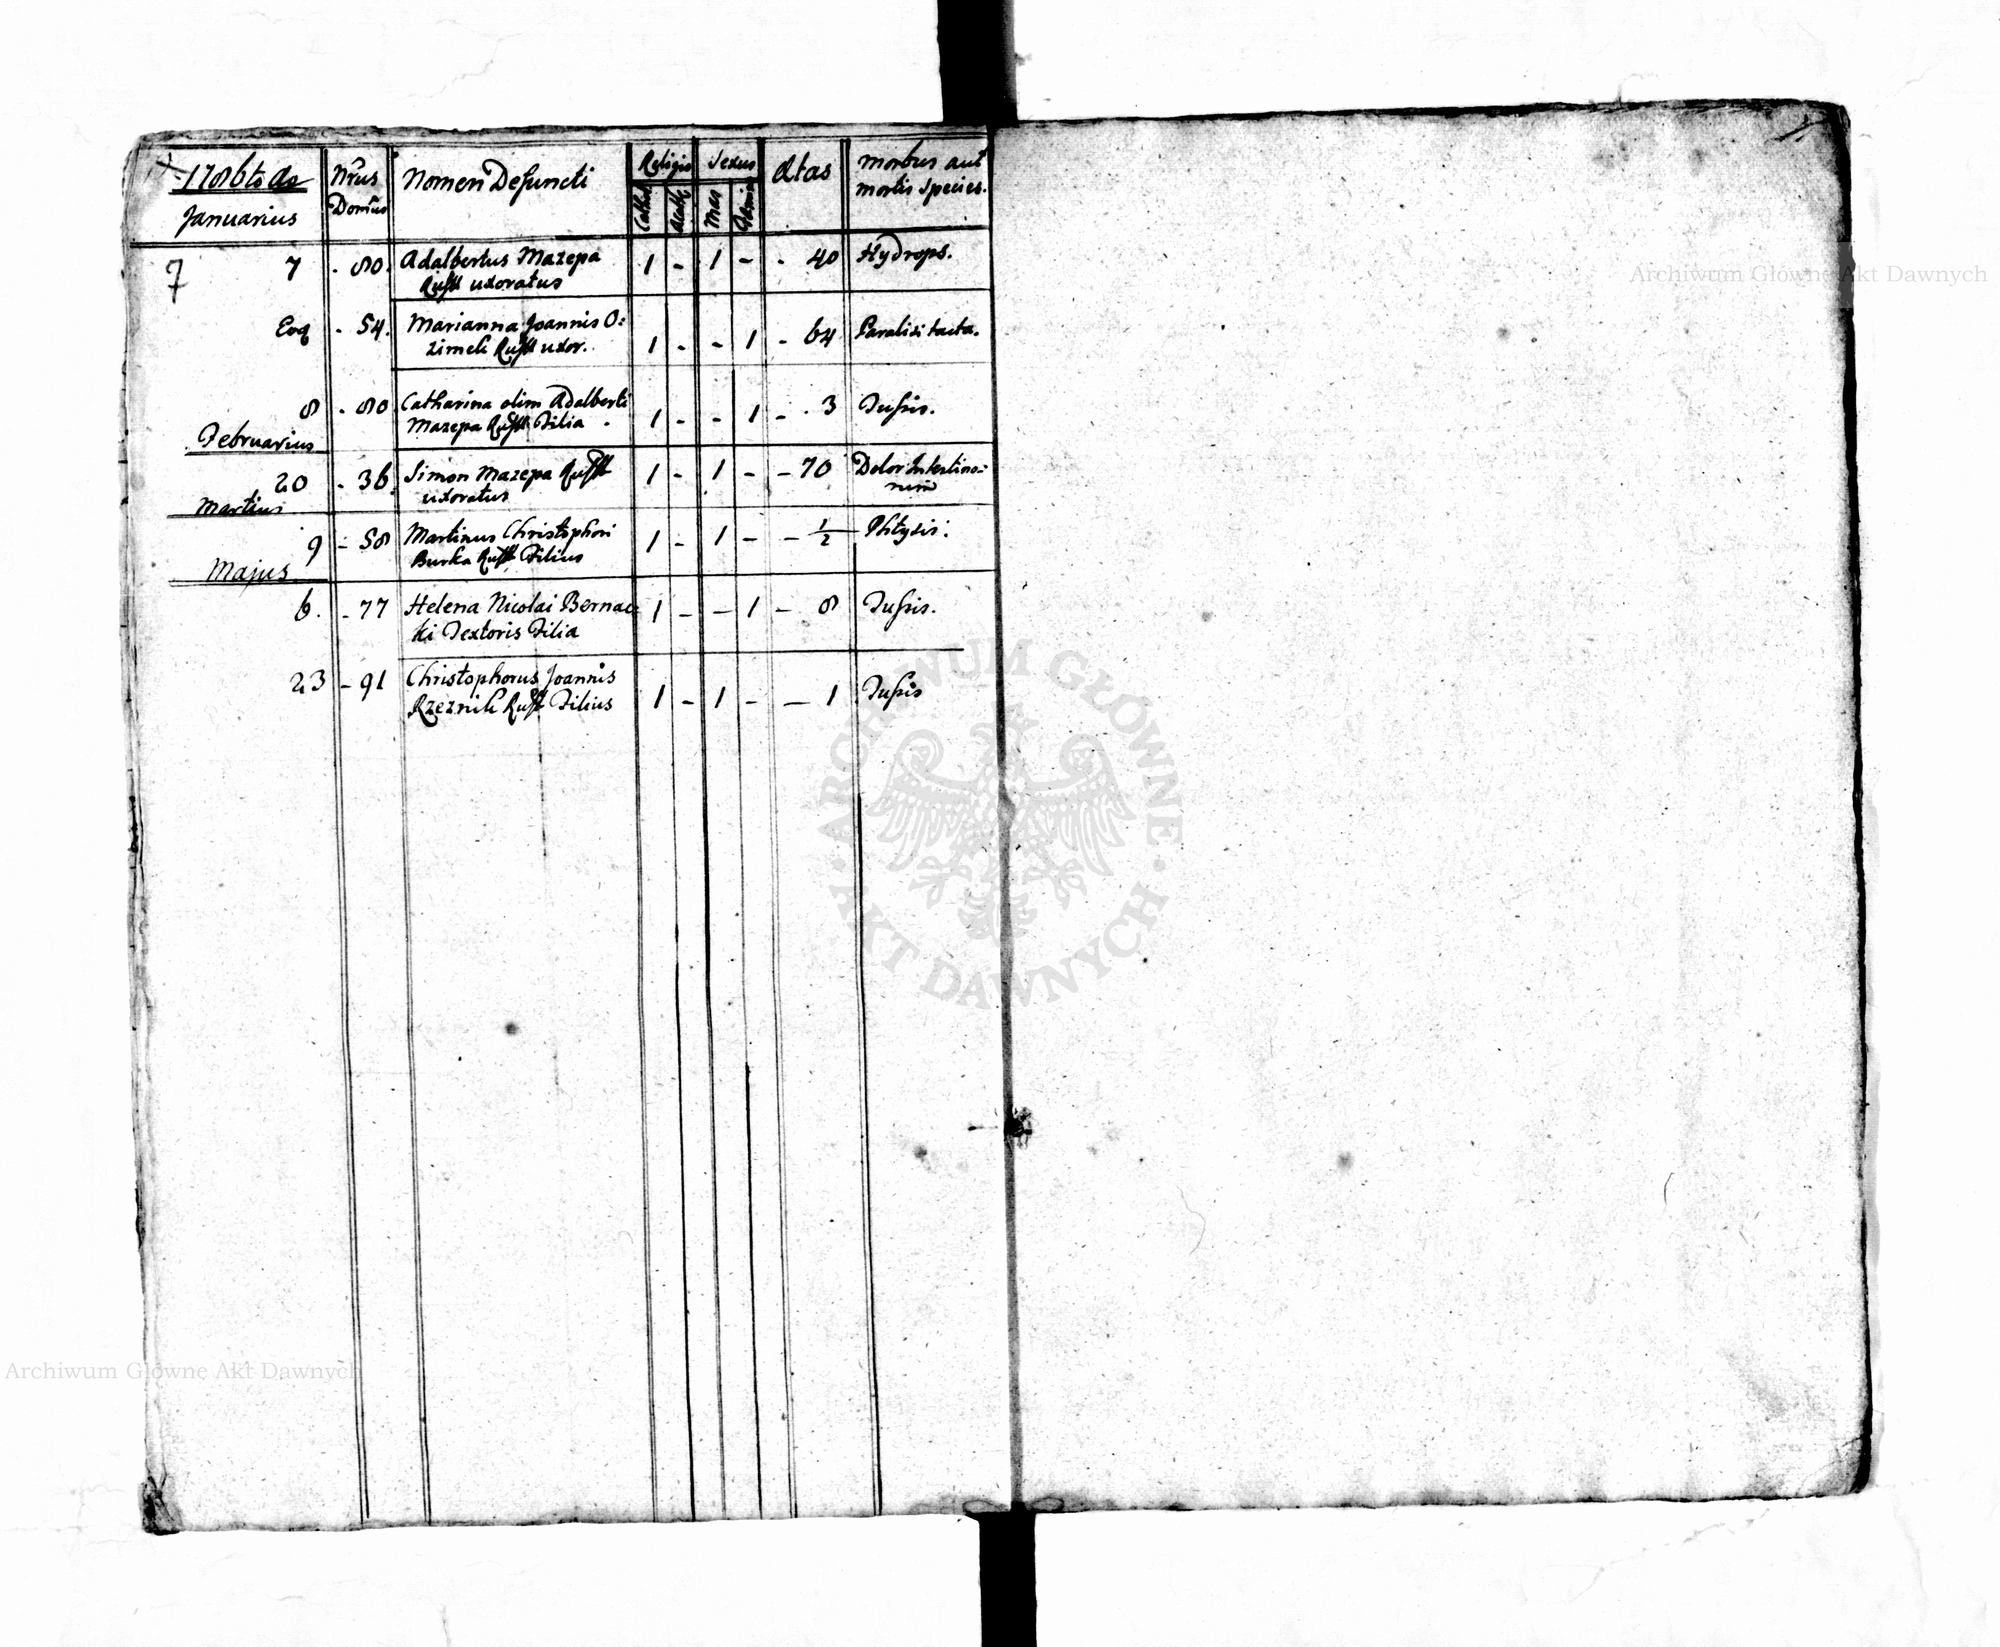 1786to do
Januarius
Nrus
Domus
Nomen Defuncti
Religio
Cathol.
Acath.
Sexus
Mas
Femin
Ætas
Morbus aut
mortis species.
7
7 - 80. Adalbertus Mazepa 1 - 1 - - 40 Hydrops.
Rust uxoratus
Eoq - 54. Marianna Joannis O:
zimek Rust uxor. 1 - - 1 - 64 Paralisi tacta.
8 - 80 Catharina olim Adalberti
Mazepa Rust Filia 1 - - 1 - 3 Tussis.
Februarius
20 - 36 Simon Mazepa Rust 1 - 1 - - 70 Dolor Intestino:
uxoratus rum
Martius
9 - 58 Martinus Christophori 1 - 1 - - 1/2 Phtysis.
Burka Rust Filius
Majus
6. - 77 Helena Nicolai Bernac: 1 - - 1 - 8 Tussis.
ki Textoris Filia
23 - 91 Christophorus Joannis
Rzeznik Rust Filius 1 - 1 - - 1 Tussis
Archiwum Główne Akt Dawnych
ARCHIWUM GŁÓWNE
AKT DAWNYCH
Archiwum Główne Akt Dawnych